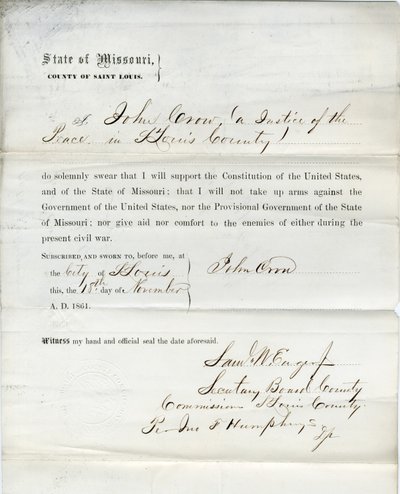 State of Missouri,
COUNTY OF SAINT LOUIS.
I John Crow, (a Justice of the
Peace in St Louis County)
do solemnly swear that I will support the Constitution of the United States,
and of the State of Missouri; that I will not take up arms against the
Government of the United States, nor the Provisional Government of the State
of Missouri; nor give aid nor comfort to the enemies of either during the
present civil war.
SUBSCRIBED AND SWORN TO, before me, at
the City of St Louis
this, the 18th day of November
A. D. 1861.
John Crow
Witness my hand and official seal the date aforesaid.
Saml W Eager Jr
Secretary Board County
Commissioners St Louis County
Per Jno F Humphreys